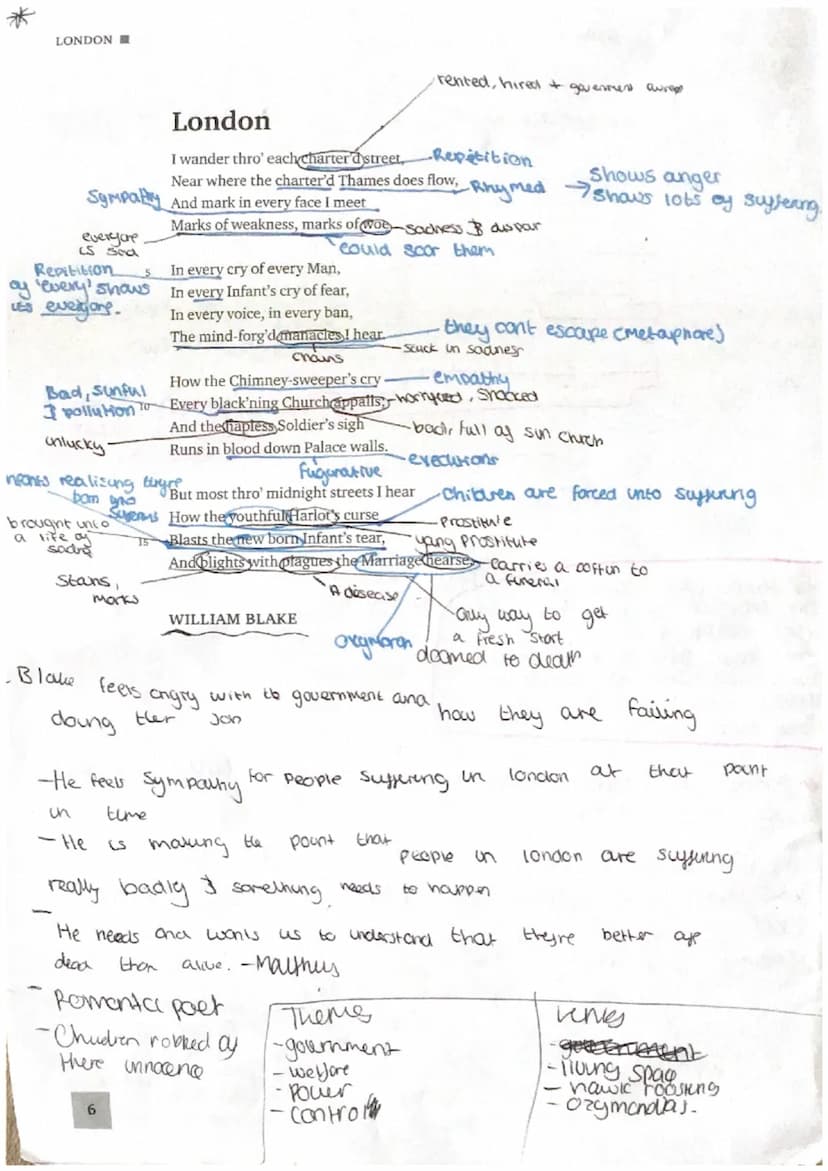 LONDON
rented, hired + government
London
I wander thro' each charter'd street,
Repetition
Near where the charter'd Thames does flow,
Rhymed
Shows anger
→ Shows lots of suffering
Sympathy
And mark in every face I meet
Marks of weakness, marks of woe.
sadness & dispair
everyone is sad
could scar them
Repitition of 'every' shows its everyone.
5
In every cry of every Man,
In every Infant's cry of fear,
In every voice, in every ban,
The mind-forg'd manacles I hear
they cant escape (Metaphore)
stuck in sadness
chains
How the Chimney-sweeper's cry
empathy
Bad, sinful & pollution
10
Every black'ning Church appalls;
horryfied, shocked
And the hapless Soldier's sigh
full of sin church
unlucky
Runs in blood down Palace walls.
executions
figurative
infants realising theyre born into
But most thro' midnight streets I hear
Children are forced into suffering
How the youthful Harlot's curse
Prostitute
brought into a life of
15
Blasts the new born Infant's tear,
yong prostitute
And blights with plagues the Marriage hearse.
Carries a coffin to a funeral
Stains, marks
A disease
Only way to get a fresh start
WILLIAM BLAKE
oxymoron
doomed to death
- Blake feels angry with the government and how they are failing
doing their job
- He feels sympathy for people suffering in london at that point
in time
- He is making the point that people in london are suffering
really badly & something needs to happen
- He needs and wants us to understand that theyre better off
dead than alive. - Malthus
- Romantic poet
- Children robbed of there innocence
Themes
- government
- welfare
- Power
- control
Links
- living space
- hawk roosting
- Ozymandias.
6